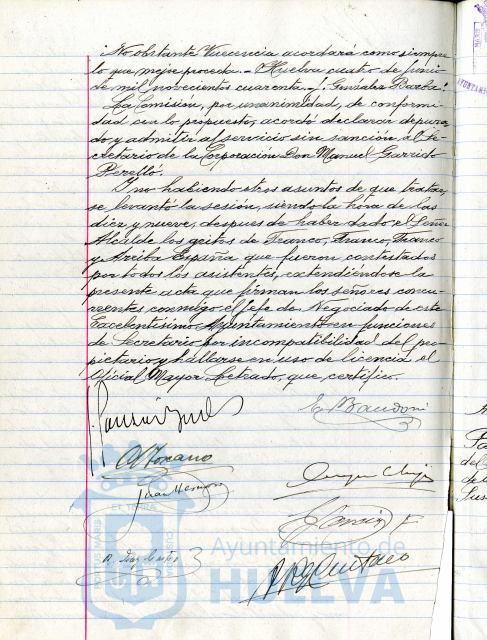 No obstante Vuecencia acordará como siempre
lo que mejor proceda.- Huelva cuatro de junio
de mil novecientos cuarenta.- González Barba."
La Comisión, por unanimidad, de conformi-
dad con lo propuesto, acordó declarar depura-
do y admitir al servicio sin sanción al Se-
cretario de la Corporación Don Manuel Garrido
Perelló.
Y no habiendo otros asuntos de que tratar,
se levantó la sesión, siendo la hora de las
diez y nueve, despues de haber dado el Señor
Alcalde los gritos de Franco, Franco, Franco
y Arriba España que fueron contestados
por todos los asistentes, extendiéndose la
presente acta que firman los señores concu-
rrentes conmigo el Jefe de Negociado de este
Excelentísimo Ayuntamiento en funciones
de Secretario por incompatibilidad del pro-
pietario y hallarse en uso de licencia el
Oficial Mayor Letrado, que certifico.
Juan Hermoso
Ayuntamiento de
HUELVA